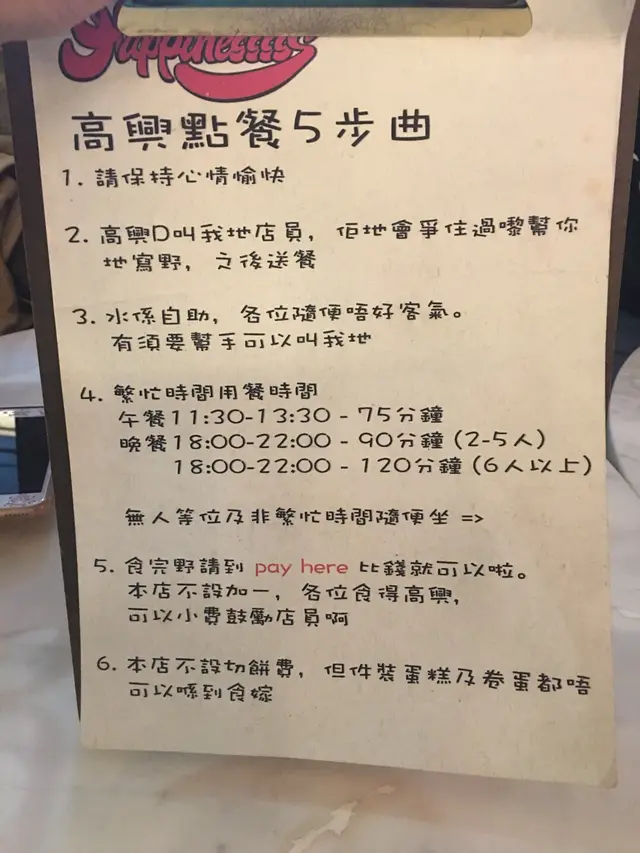 高興點餐5步曲
1. 請保持心情愉快
2. 高興D叫我地店員，佢地會爭住過嚟幫你
地寫野，之後送餐
3. 水係自助，各位隨便唔好客氣。
有須要幫手可以叫我地
4. 繁忙時間用餐時間
午餐11:30-13:30 - 75分鐘
晚餐18:00-22:00 - 90分鐘 (2-5人)
18:00-22:00 - 120分鐘 (6人以上)
無人等位及非繁忙時間隨便坐 =>
5. 食完野請到 pay here 比錢就可以啦。
本店不設加一，各位食得高興，
可以小費鼓勵店員啊
6. 本店不設切餅費，但件裝蛋糕及卷蛋都唔
可以喺到食嫁